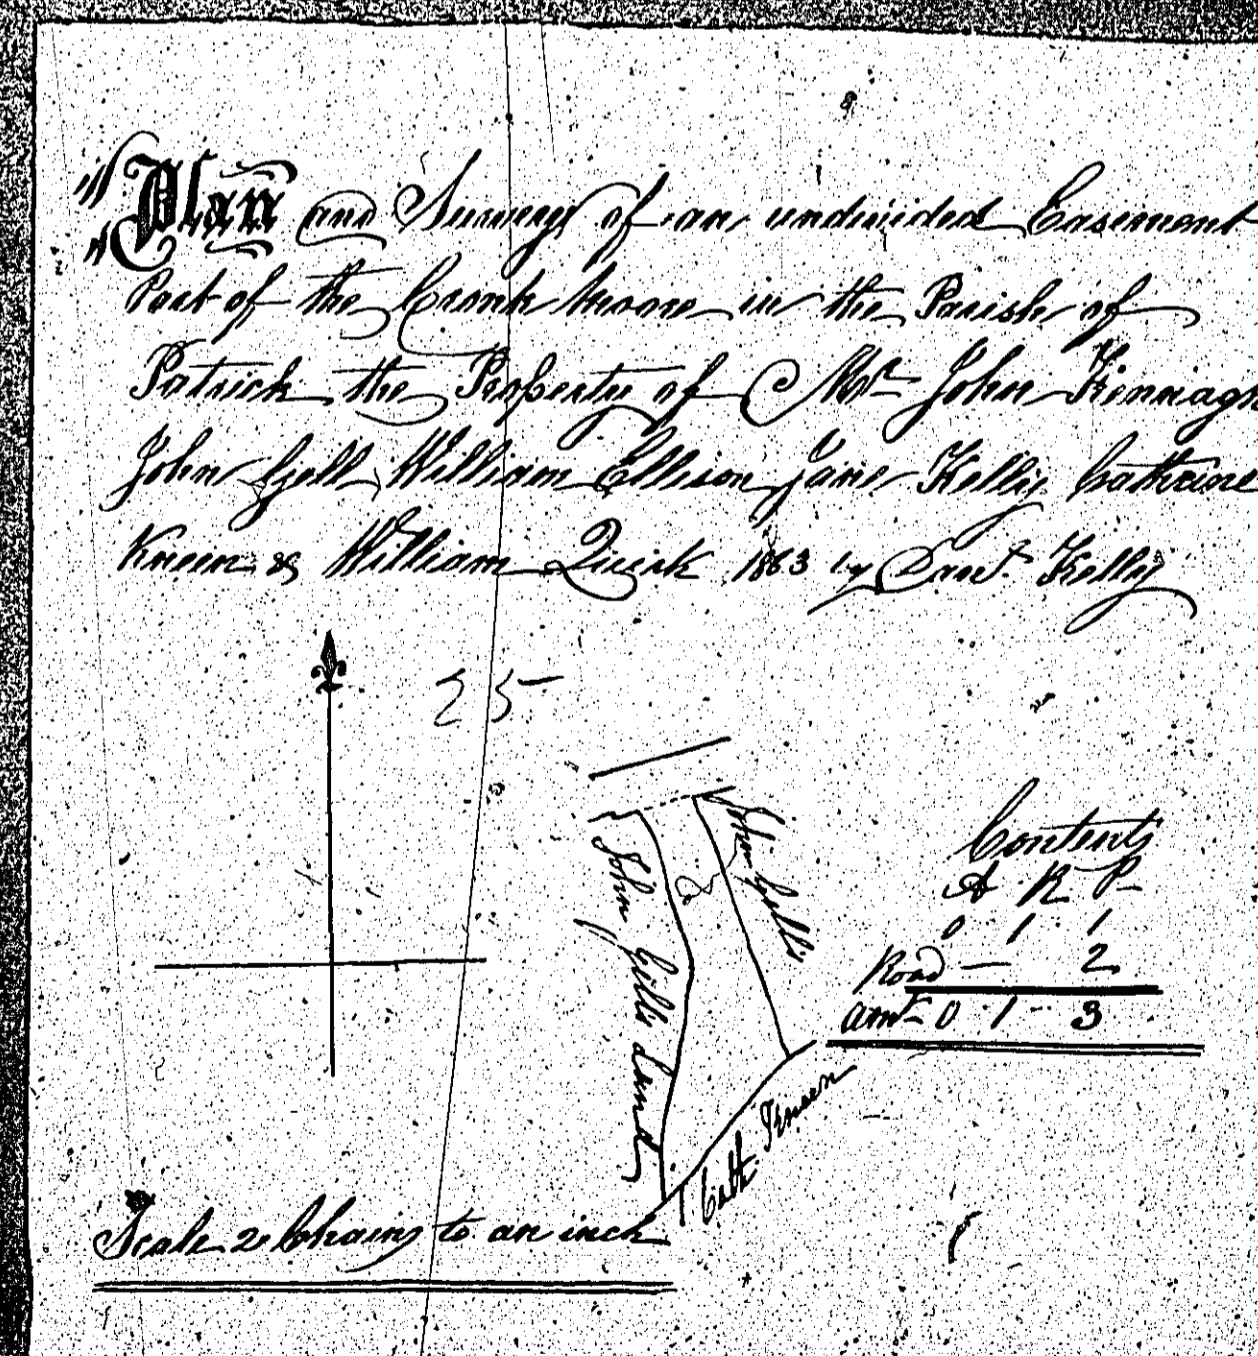 Plan and Survey of an undivided Easement
Part of the Cronk mooar in the Parish of
Patrick the Property of Mr John Kennagh
John Gell, William Ellison, Jane Kelly, Cathrine
Kneen & William Quirk 1863 by Danl. Kelly
25
John Gell's
John Gells Land
Cath Kneen
Contents
A R P
0 1 1
Road — 2
amt 0 1 3
Scale 2 Chains to an inch